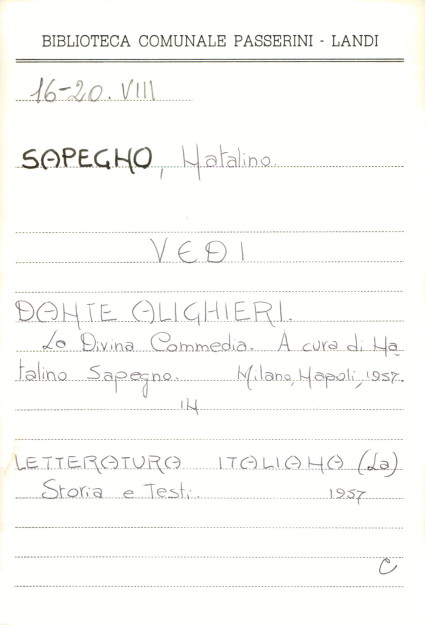 BIBLIOTECA COMUNALE PASSERINI - LANDI
16-20.VIII
SAPEGNO, Natalino.
VEDI
DANTE ALIGHIERI.
La Divina Commedia. A cura di Na-
talino Sapegno. Milano, Napoli, 1957.
IN
LETTERATURA ITALIANA (La)
Storia e Testi. 1957
C